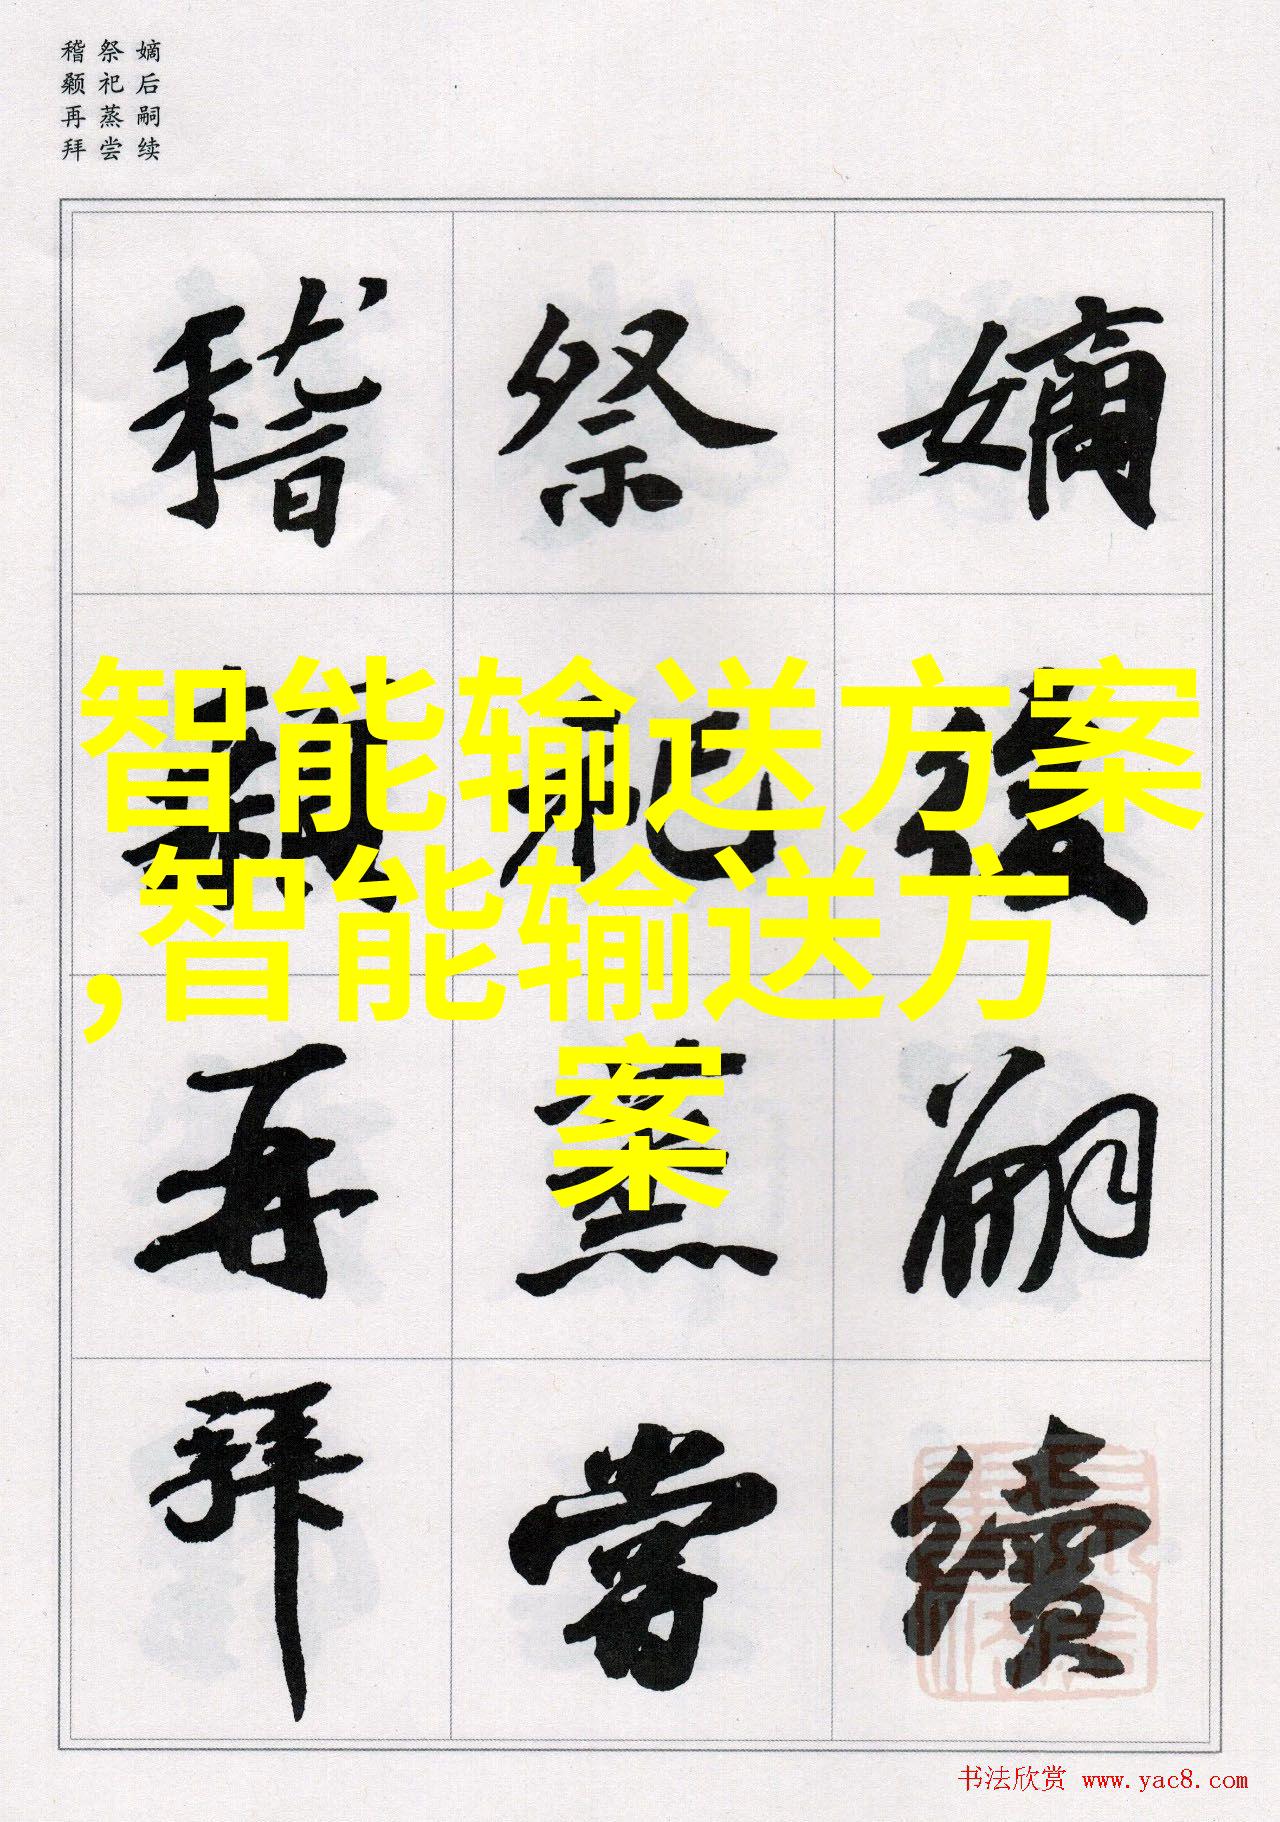 嫡后嗣续
祭祀蒸尝
稽颡再拜
嫡後嗣續
祭祀蒸嘗
稽顙再拜
智能输送方案
,智能输送方
案
书法欣赏 www.yac8.com